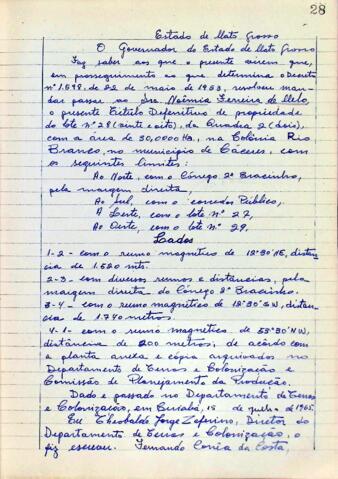 28
Estado de Mato Grosso
O Governador do Estado de Mato Grosso
Faz saber aos que o presente virem que,
em prosseguimento ao que determina o Decreto
nº 1.598, de 22 de maio de 1953, resolveu man-
dar passar ao Sra. Noêmia Ferreira de Melo,
o presente Título Definitivo de propriedade
do lote nº 28 (vinte e oito), da Quadra 2 (dois),
com a área de 30,0000 Ha, na Colônia Rio
Branco, no município de Cáceres, com
os seguintes limites:
Ao Norte, com o Córrego 2º Bracinho,
pela margem direita,
Ao Sul, com o corredor Público,
A Leste, com o lote nº 27,
Ao Oeste, com o lote nº 29.
Lados
1-2 - com o rumo magnético de 12º30'NE, distân-
cia de 1.520 mts.
2-3 - com diversos rumos e distâncias, pela
margem direita do Córrego 2º Bracinho.
3-4 - com o rumo magnético de 12º30'SW, distân-
cia de 1.740 metros.
4-1 - com o rumo magnético de 53º30'NW,
distância de 200 metros; de acôrdo com
a planta anexa e cópia arquivados no
Departamento de Terras e Colonização e
Comissão de Planejamento da Produção.
Dado e passado no Departamento de Terras
e Colonização, em Cuiabá, 15 de julho de 1965.
Eu Theobaldo Jorge Zeferino, Diretor do
Departamento de Terras e Colonização, o
fiz escrever. Fernando Corrêa da Costa,